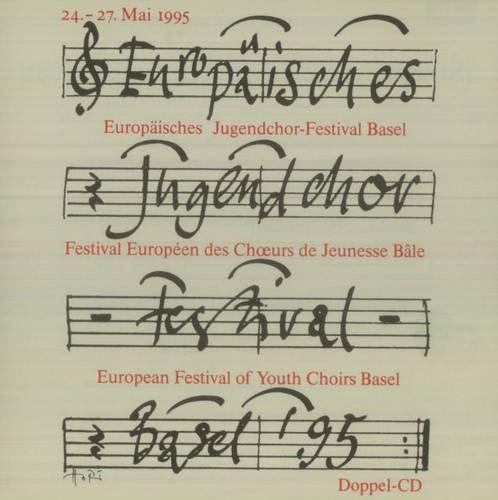 24.–27. Mai 1995
Europäisches
Europäisches Jugendchor-Festival Basel
Jugendchor
Festival Européen des Chœurs de Jeunesse Bâle
Festival
European Festival of Youth Choirs Basel
Basel '95
Doppel-CD